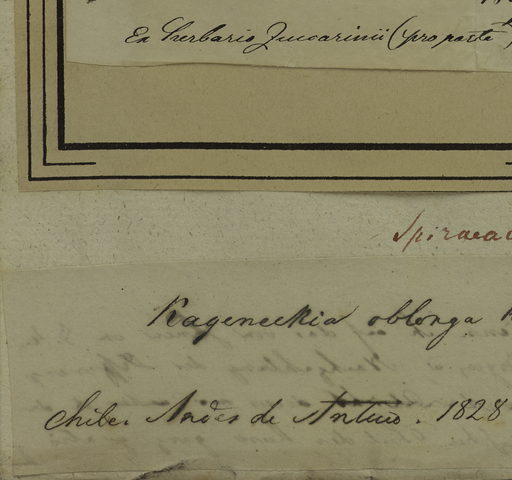 Ex herbario Zuccarinii (pro parte
Spiraea
Kageneckia oblonga
Chile. Andes de Antuco. 1828